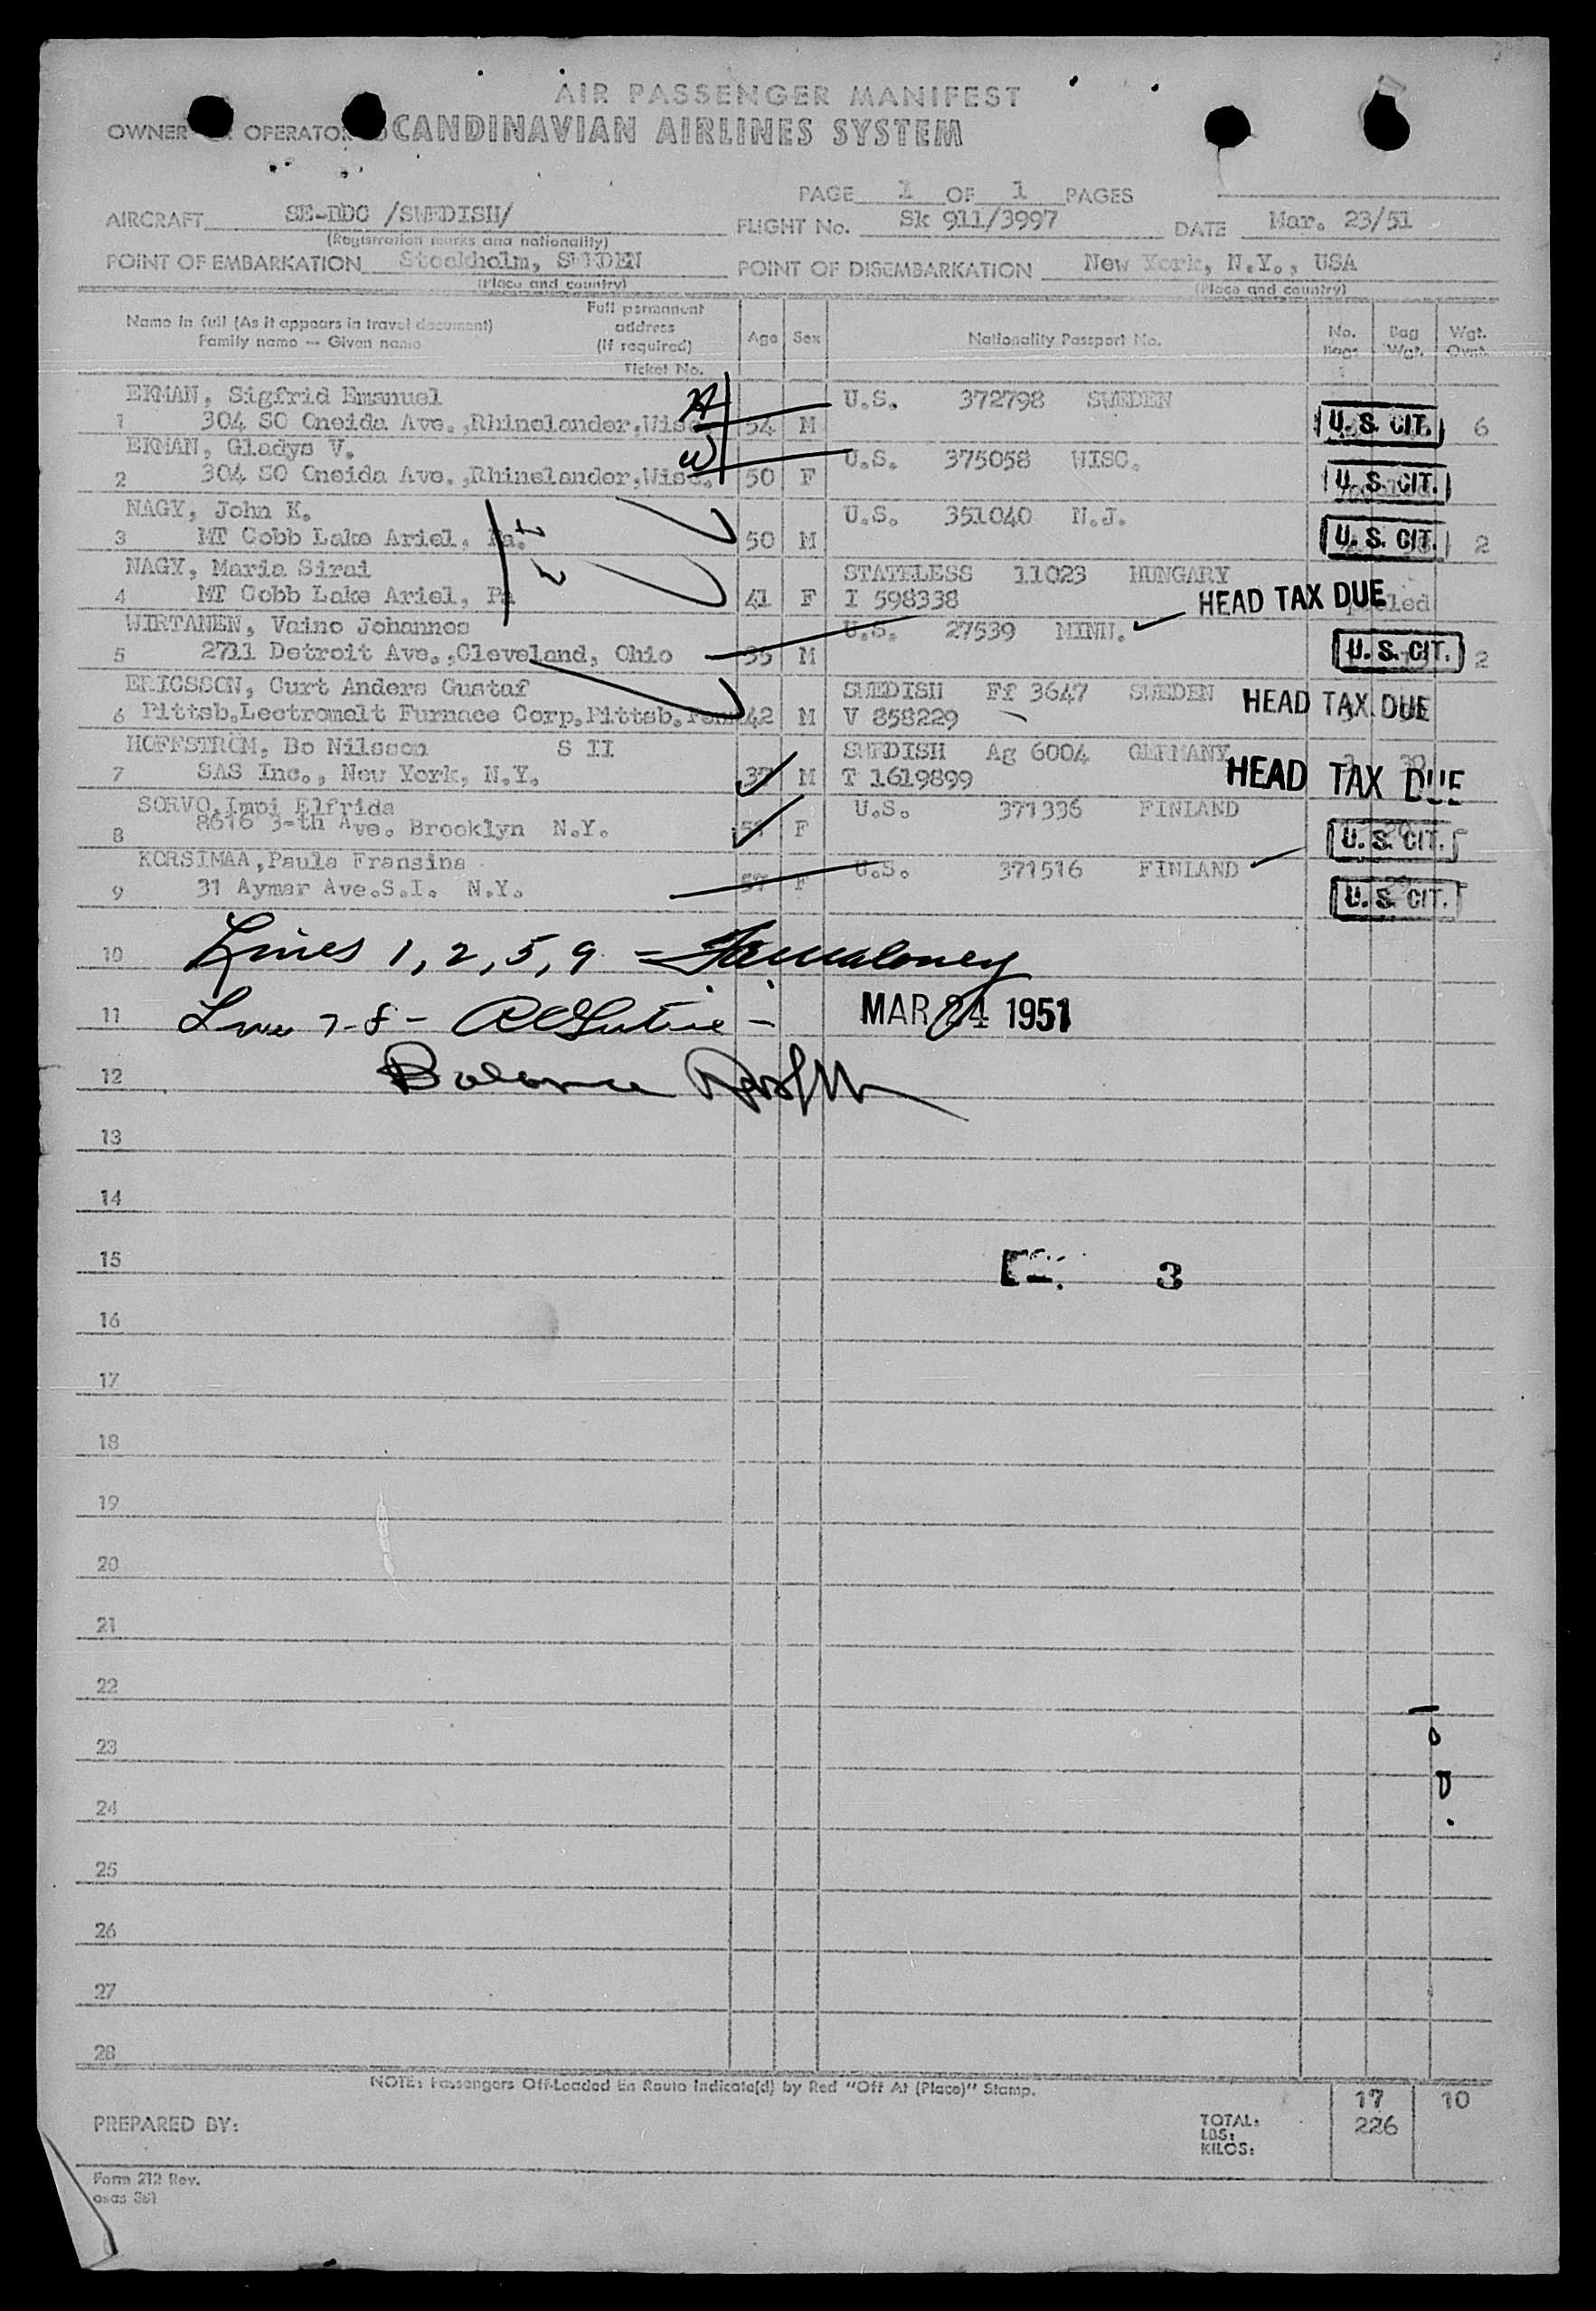 AIR PASSENGER MANIFEST
OWNER OPERATOR SCANDINAVIAN AIRLINES SYSTEM
PAGE 1 OF 1 PAGES
AIRCRAFT SE-BDO /SWEDISH/ FLIGHT No. Sk 911/3997 DATE Mar. 23/51
(Registration marks and nationality)
POINT OF EMBARKATION Stockholm, SWEDEN POINT OF DISEMBARKATION New York, N.Y., USA
(Place and country) (Place and country)
Name in full (As it appears in travel document) Family name -- Given name Full permanent address (If required) Ticket No. Age Sex Nationality Passport No. No. Bags Bag Wgt. Wgt. Ovwt.
EKMAN, Sigfrid Emanuel U.S. 372798 SWEDEN
1 304 SO Oneida Ave.,Rhinelander,Wisc. 54 M U.S. CIT. 6
EKMAN, Gladys V. W U.S. 375058 WISC.
2 304 SO Oneida Ave.,Rhinelander,Wisc. 50 F U.S. CIT.
NAGY, John K. U.S. 351040 N.J.
3 MT Cobb Lake Ariel, Pa. 50 M U.S. CIT. 2
NAGY, Maria Sirai STATELESS 11023 HUNGARY
4 MT Cobb Lake Ariel, Pa 41 F I 598338 HEAD TAX DUE
WIRTANEN, Vaino Johannes U.S. 27539 MINN.
5 2711 Detroit Ave.,Cleveland, Ohio 35 M U.S. CIT. 2
ERICSSON, Curt Anders Gustaf SWEDISH Ff 3647 SWEDEN
6 Pittsb.Lectromelt Furnace Corp.Pittsb.Penn 42 M V 858229 HEAD TAX DUE
HOFFSTROM, Bo Nilsson S II SWEDISH Ag 6004 GERMANY
7 SAS Inc., New York, N.Y. 37 M T 1619899 HEAD TAX DUE
SORVO,Impi Elfrida U.S. 371336 FINLAND
8 8616 3-th Ave. Brooklyn N.Y. F U.S. CIT.
KORSIMAA,Paula Fransina U.S. 371516 FINLAND
9 31 Aymar Ave.S.I. N.Y. 57 F U.S. CIT.
10 Lines 1, 2, 5, 9 -
11 Line 7-8 - MAR 24 1951
12 Balance
13
14
15 3
16
17
18
19
20
21
22
23
24
25
26
27
28
NOTE: Passengers Off-Loaded En Route Indicate(d) by Red "Off At (Place)" Stamp.
PREPARED BY: TOTAL: 17 10
LBS: 226
KILOS:
Form 212 Rev.